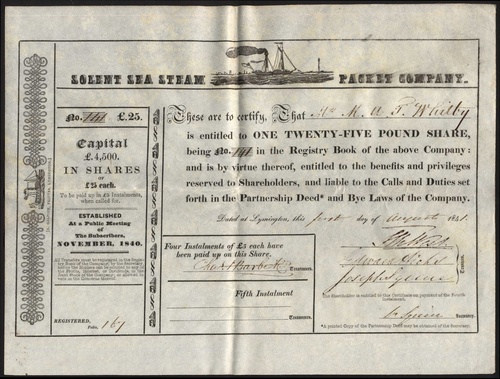 SOLENT SEA STEAM PACKET COMPANY.
No. 141 £.25.
Capital
£.4,500,
IN SHARES
OF
£25 each.
To be paid up in £5 Instalments,
when called for.
ESTABLISHED
At a Public Meeting
of
The Subscribers,
NOVEMBER, 1840.
REGISTERED,
Folio, 167
These are to certify, That M. A. T. Whitby
is entitled to ONE TWENTY-FIVE POUND SHARE,
being No. 141 in the Registry Book of the above Company:
and is by virtue thereof, entitled to the benefits and privileges
reserved to Shareholders, and liable to the Calls and Duties set
forth in the Partnership Deed* and Bye Laws of the Company.
Dated at Lymington, this first day of August 1841.
Four Instalments of £5 each have
been paid up on this Share.
Treasurer.
Fifth Instalment
Treasurer.
Trustees.
The Shareholder is entitled to this Certificate on payment of the Fourth
Instalment.
Secretary.
* A printed Copy of the Partnership Deed may be obtained of the Secretary.